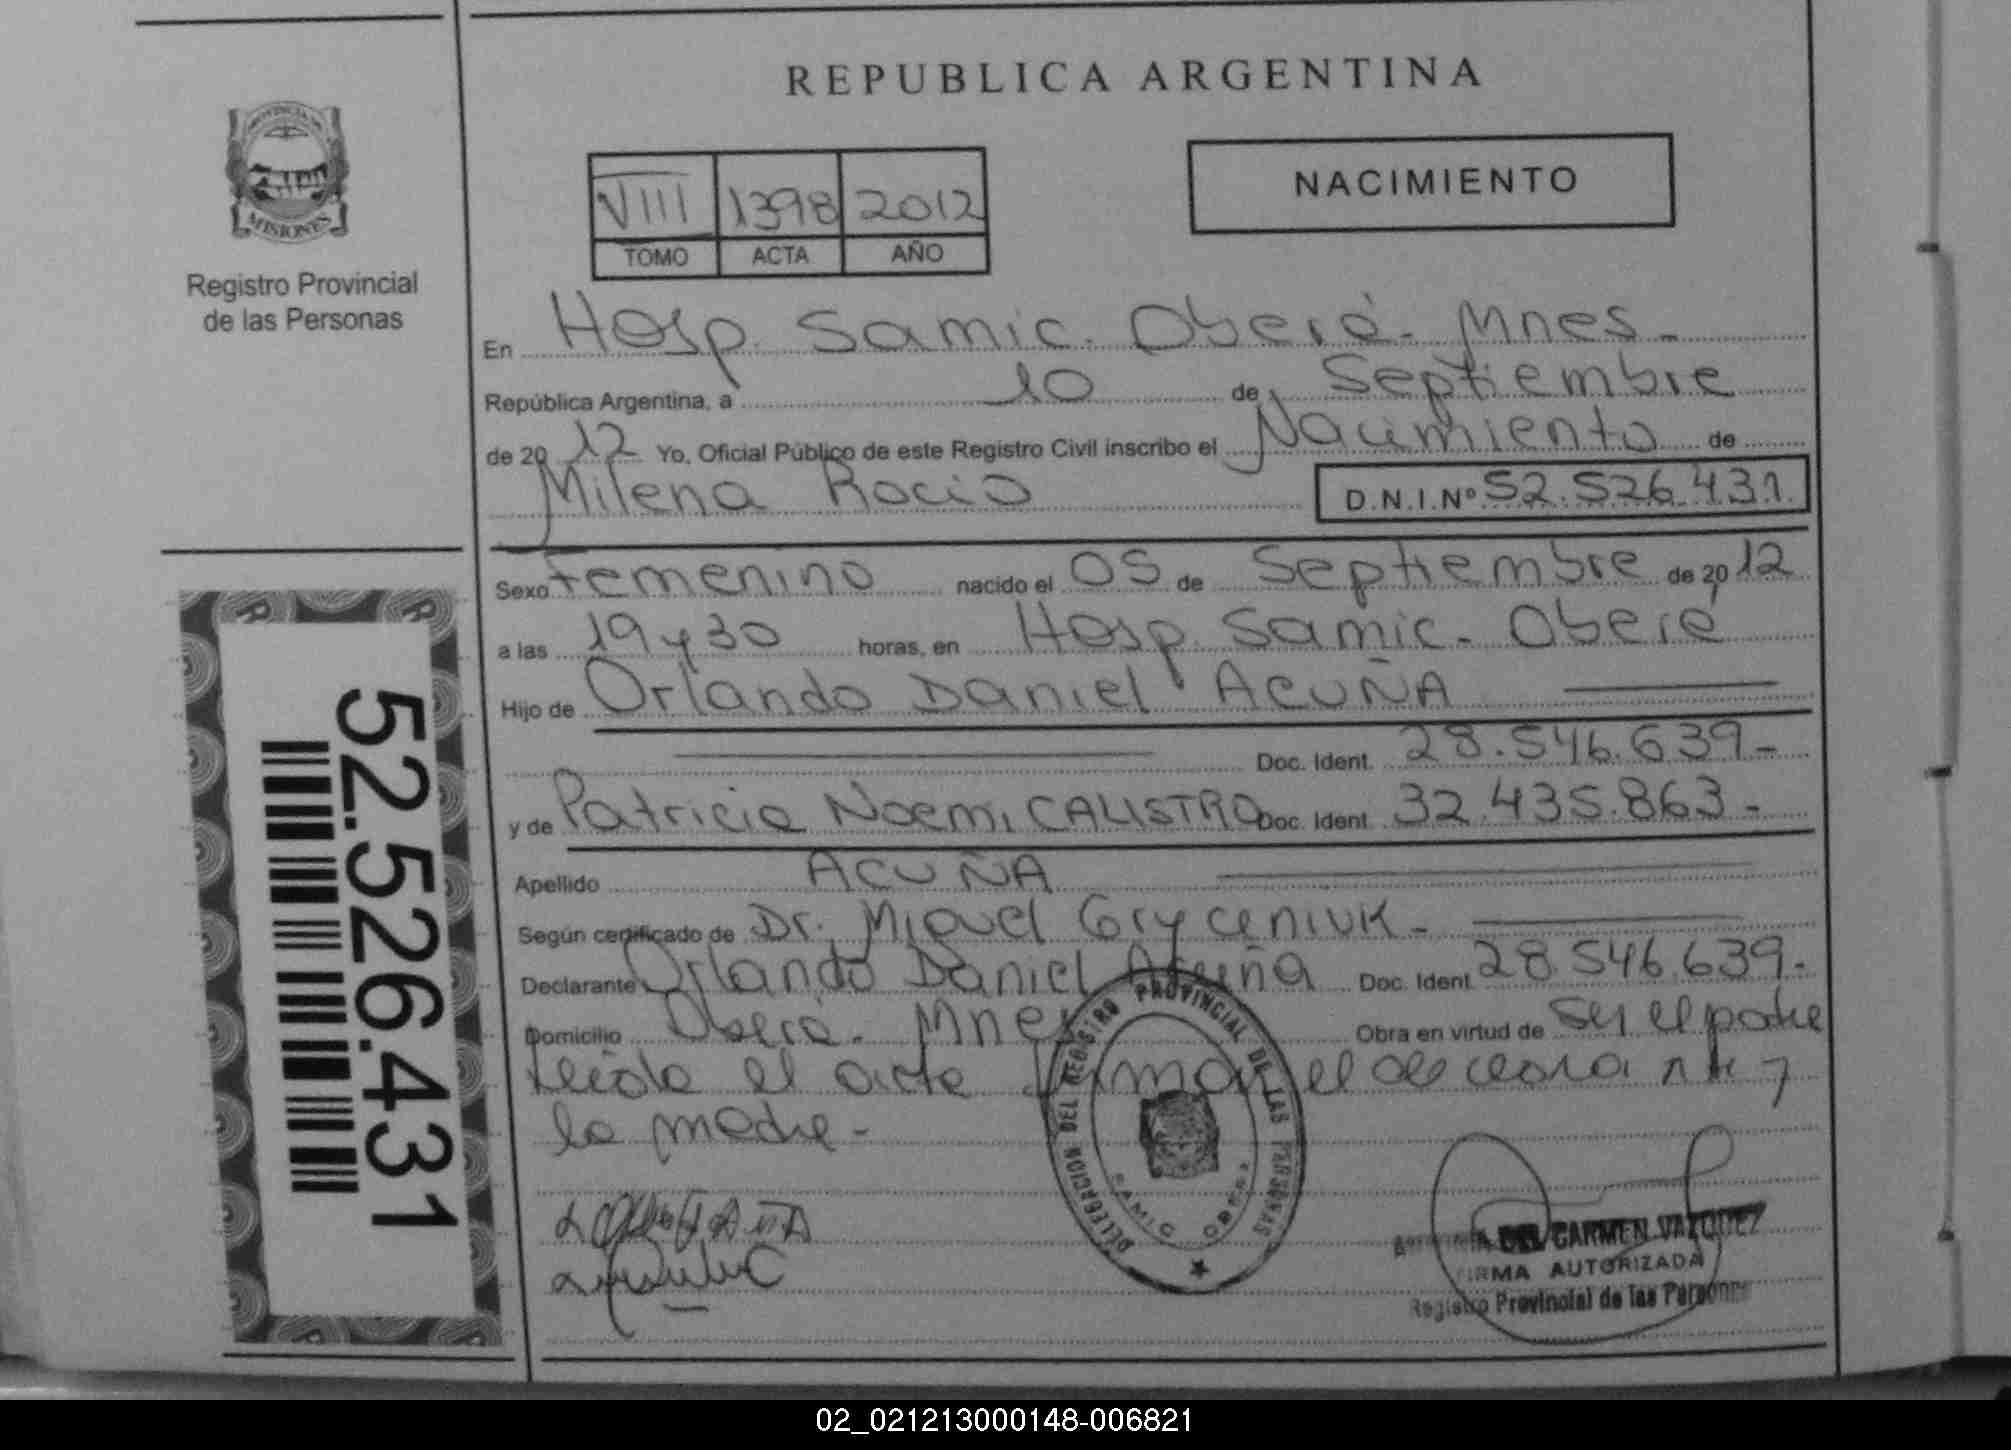 REPUBLICA ARGENTINA
PROVINCIA DE
MISIONES
Registro Provincial
de las Personas
VIII 1398 2012
TOMO ACTA AÑO
NACIMIENTO
En Hosp. Samic. Oberá - Mnes -
República Argentina, a 10 de Septiembre
de 2012 Yo, Oficial Público de este Registro Civil inscribo el Nacimiento de
Milena Rocio D.N.I.Nº 52.526.431.
Sexo Femenino nacido el 05 de Septiembre de 2012
a las 19 y 30 horas, en Hosp. Samic - Oberá
Hijo de Orlando Daniel ACUÑA
Doc. Ident. 28.546.639 -
y de Patricia Noemi CALISTRO Doc. Ident. 32.435.863 -
Apellido ACUÑA
Según certificado de Dr. Miguel Gryceniuk -
Declarante Orlando Daniel Acuña Doc. Ident. 28.546.639 -
Domicilio Oberá - Mnes Obra en virtud de ser el padre
Leida el acta firman el declarante y
la madre -
52.526.431
DELEGACION DEL REGISTRO PROVINCIAL DE LAS PERSONAS
SAMIC OBERA
DEL CARMEN VAZQUEZ
FIRMA AUTORIZADA
Registro Provincial de las Personas
02_021213000148-006821